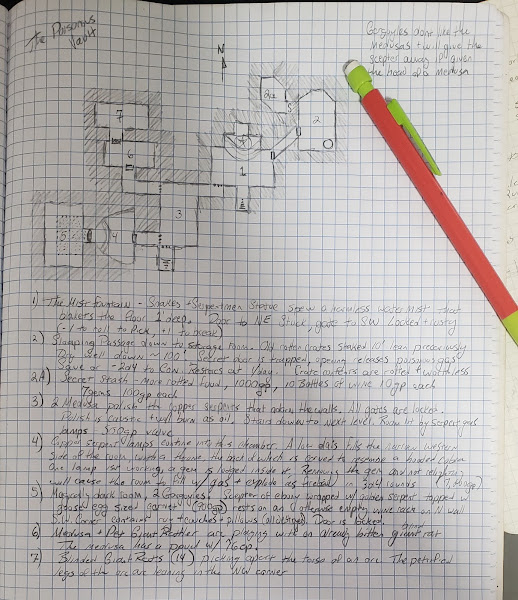 The Poisonous
Vault
Gargoyles don't like the
medusas + will give the
scepter away if given
the head of a medusa
N
7
6
5
4
3
1
2
2A
S
1) The Mist Fountain - Snakes + Serpentmen Statue spew a harmless water mist that
covers the floor 1' deep. Door to NE stuck, gate to SW locked + rusty
(-1 to to Pick, +1 to break)
2) Sloping Passage down to storage room. Old rotten crates stacked 10' lean precariously
Dry well down ~ 100'. Secret door is trapped, opening releases poisonous gas
Save or -2d4 to Con. Restores at 1/day. Crate contents are rotted + worthless
2A) Secret Stash - More rotted food, 1000gp, 10 Bottles of wine 10gp each
7 gems 100gp each
3) 2 Medusa polish the copper serpents that adorn the walls. All gates are locked.
Polish is caustic + will burn as oil. Stairs down to next level. Room lit by serpent gas
lamps 550gp value
4) Copper serpent lamps continue into this chamber. A low dais fills the narrow western
side of the room, with a throne the back of which is carved to resemble a hooded cobra
One lamp isn't working, a gem is lodged inside it. Removing the gem and not relighting
will cause the room to fill w/ gas + explode as fireball in 3d4 rounds
5) Magically dark room, 2 Gargoyles. Scepter of ebony wrapped w/ golden serpent topped w/
goose egg sized garnet (700gp) rests on an otherwise empty on N wall
S.W. Corner contains couches + pillows Door is locked.
6) Medusa + Pet Giant Rattler are playing with an already bitten blind giant rat
The medusa has a pouch w/ 76cp
7) Blinded Giant Rats (14) picking apart the torso of an orc. The petrified
legs of the orc are leaning in the NW corner